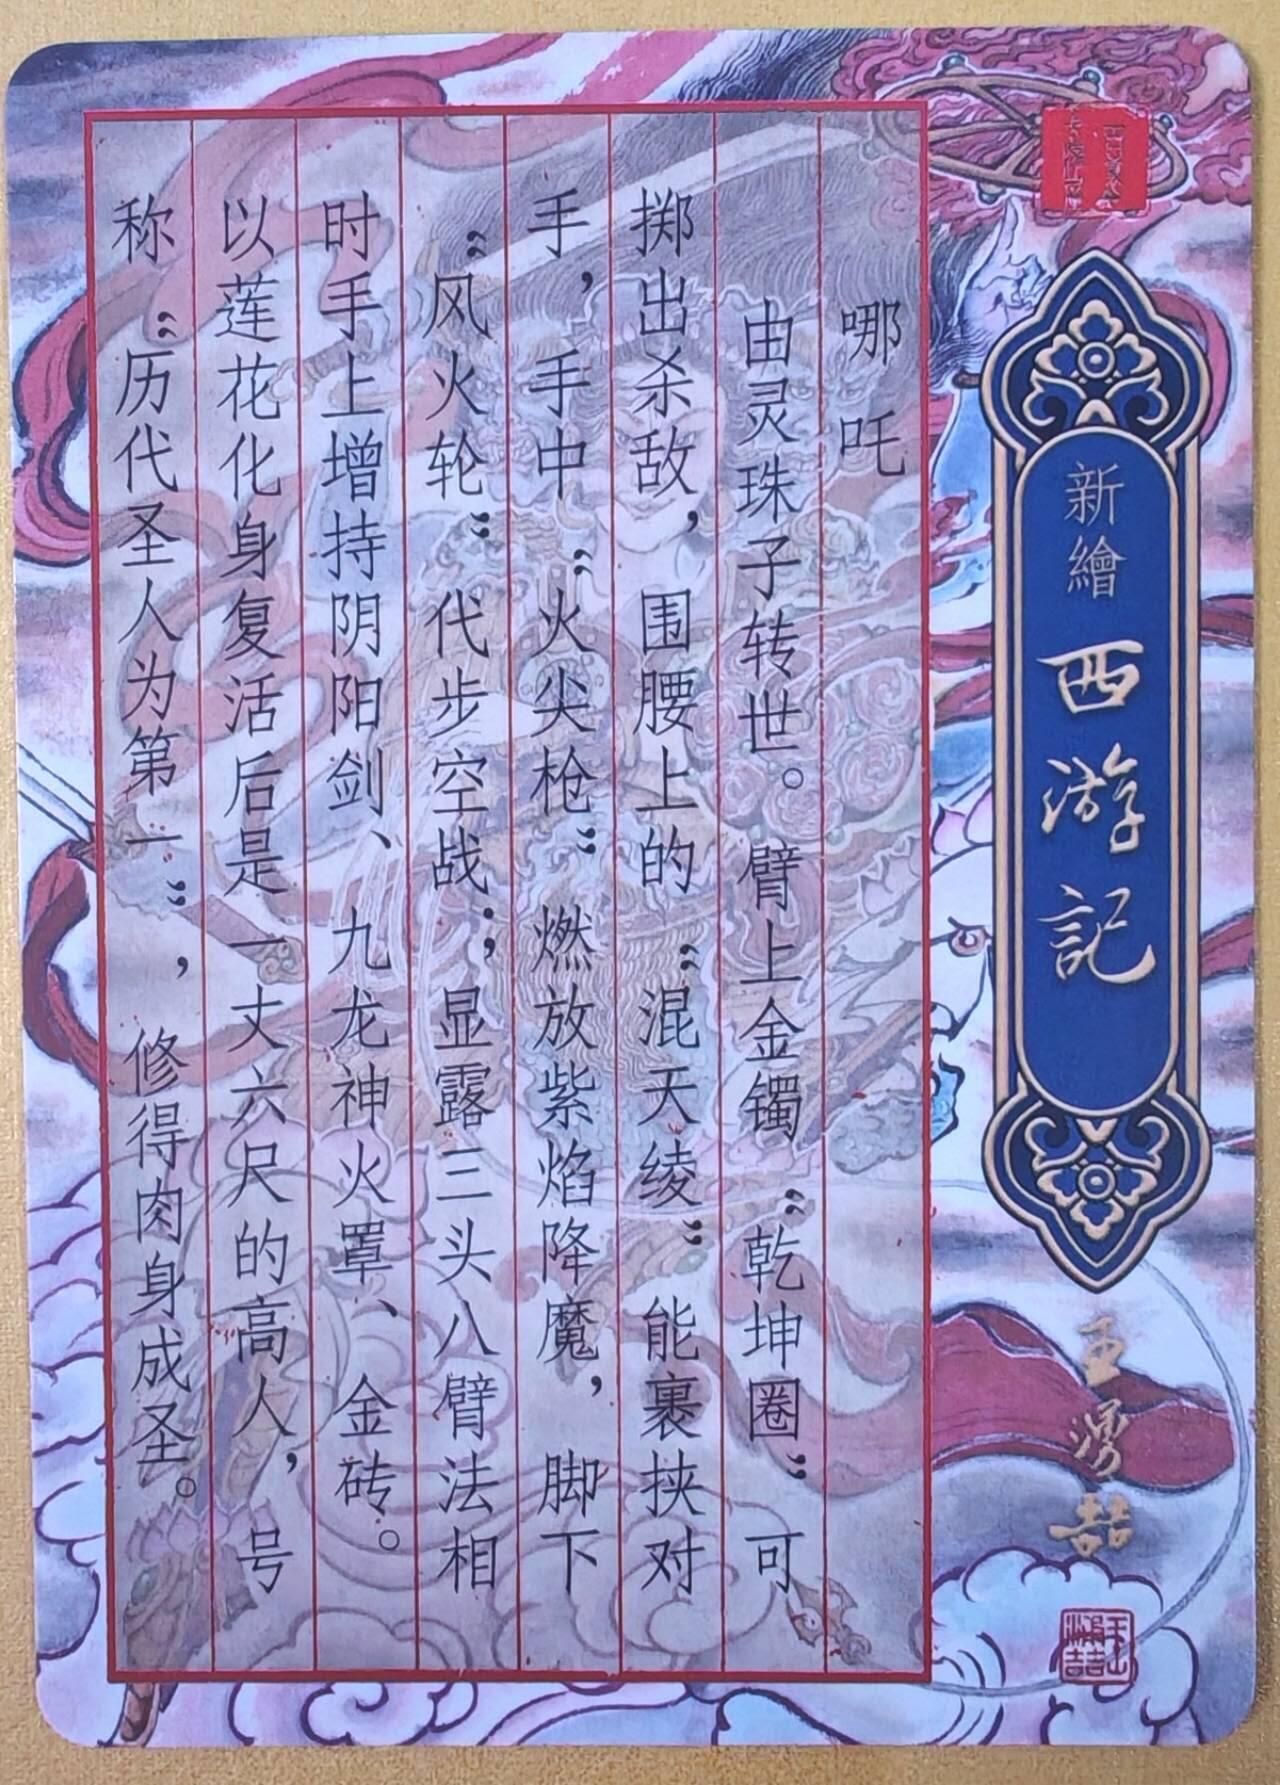 新繪西游記
王勇喆
哪吒
由灵珠子转世。臂上金镯“乾坤圈”可
掷出杀敌，围腰上的“混天绫”能裹挟对
手，手中“火尖枪”燃放紫焰降魔，脚下
“风火轮”代步空战；显露三头八臂法相
时手上增持阴阳剑、九龙神火罩、金砖。
以莲花化身复活后是一丈六尺的高人，号
称“历代圣人为第一”，修得肉身成圣。